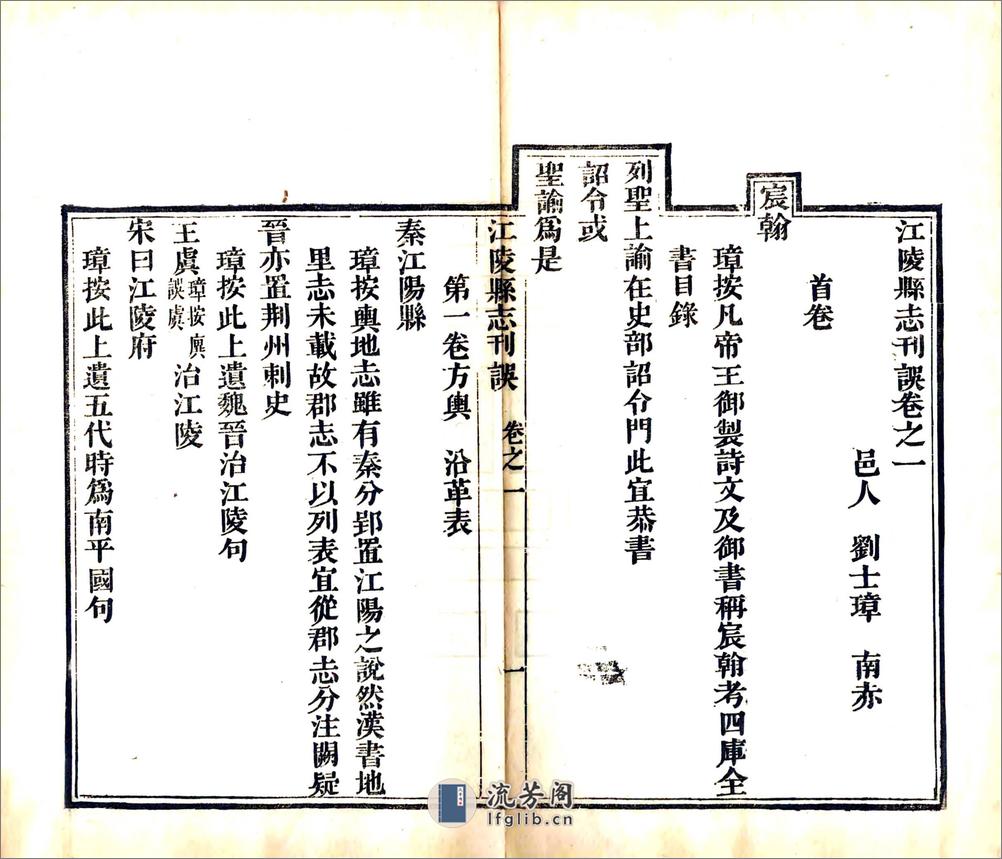 江陵縣志刊誤卷之一
邑人　劉士璋　南赤
首卷
宸翰
璋按凡帝王御製詩文及御書稱宸翰考四庫全
書目錄
列聖上諭在史部詔令門此宜恭書
詔令或
聖諭爲是
江陵縣志刊誤　卷之一　一
第一卷方輿　沿革表
秦江陽縣
璋按輿地志雖有秦分郢置江陽之說然漢書地
里志未載故郡志不以列表宜從郡志分注闕疑
晉亦置荆州刺史
璋按此上遺魏晉治江陵句
王虞璋按廙誤虞治江陵
宋曰江陵府
璋按此上遺五代時爲南平國句
流芳阁
lfglib.cn